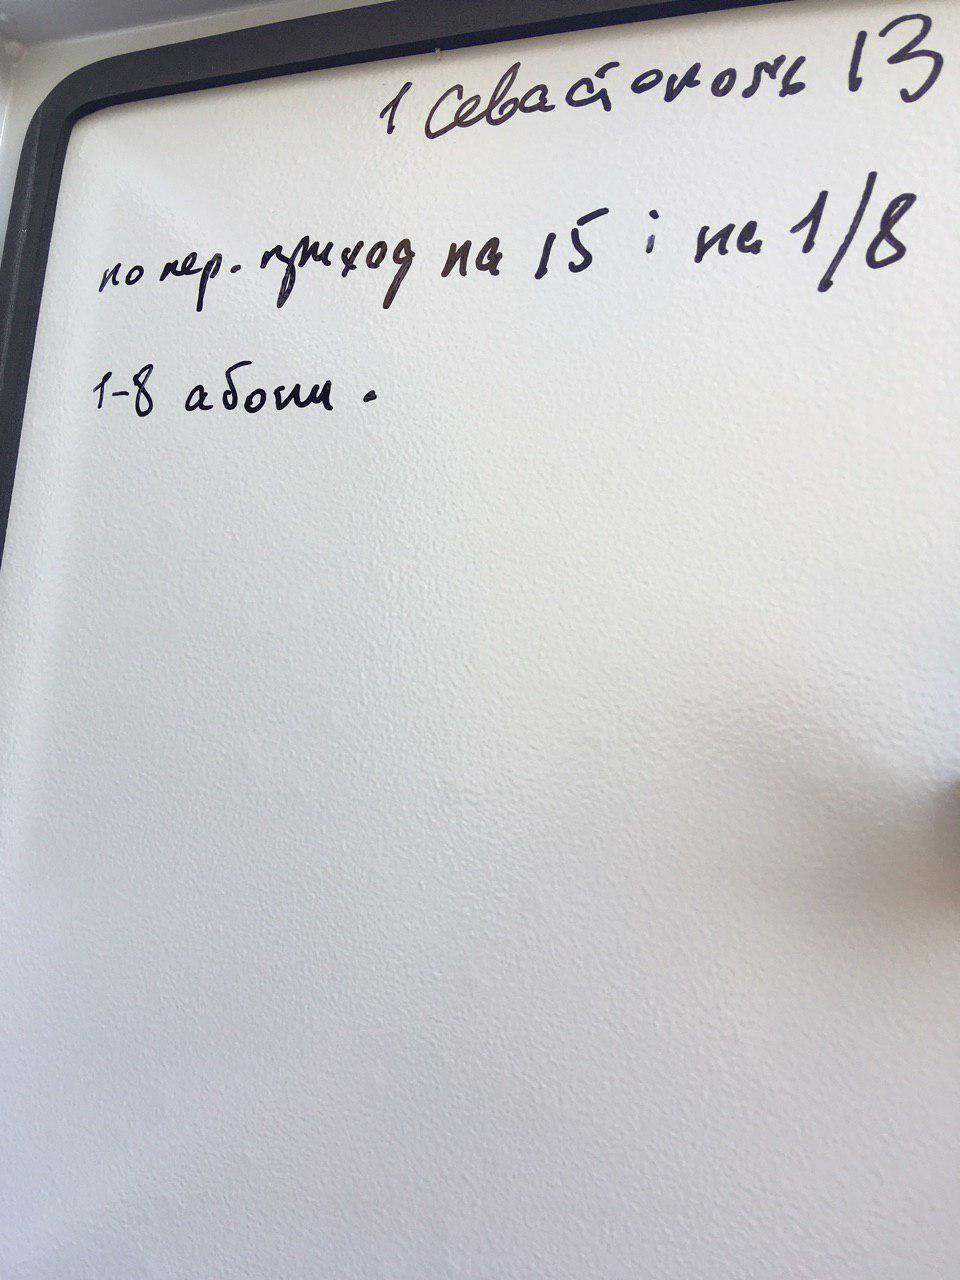 1 Севастополь 13
по пер. приход на 15 і на 1/8
1-8 абони.